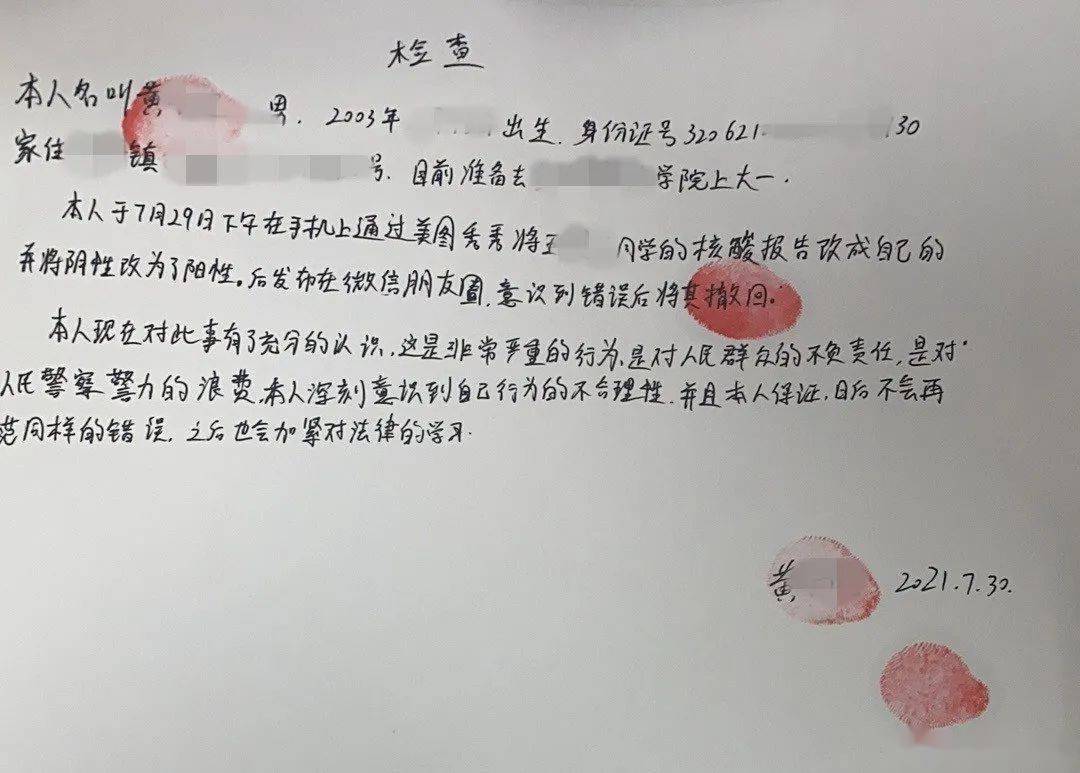 检查
本人名叫黄 男，2003年 出生，身份证号320621 130
家住 镇 号，目前准备去 学院上大一.
本人于7月29日下午在手机上通过美图秀秀将王 同学的核酸报告改成自己的
并将阴性改为了阳性。后发布在微信朋友圈，意识到错误后将其撤回。
本人现在对此事有了充分的认识，这是非常严重的行为，是对人民群众的不负责任，是对
人民警察警力的浪费，本人深刻意识到自己行为的不合理性，并且本人保证，日后不会再
范同样的错误，之后也会加紧对法律的学习.
黄 2021.7.30.